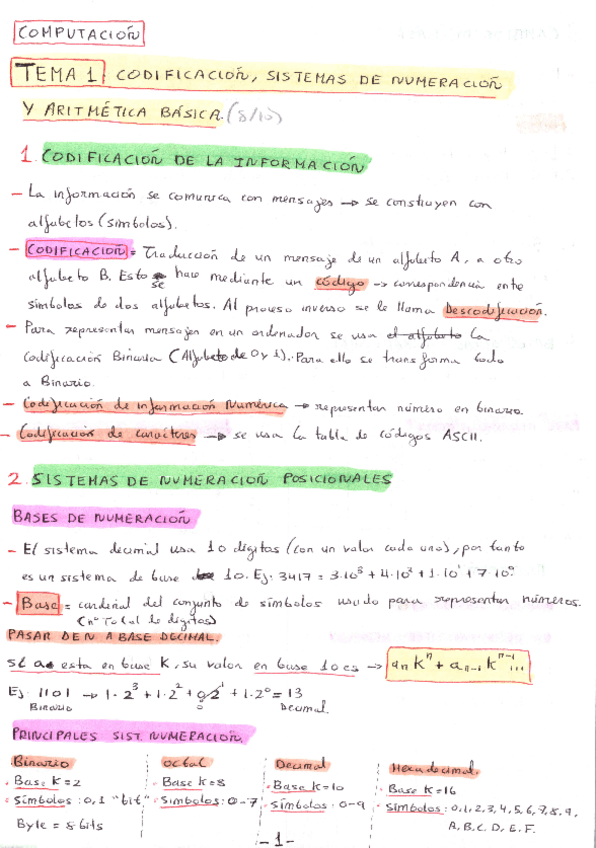 COMPUTACIÓN
TEMA 1 CODIFICACIÓN, SISTEMAS DE NUMERACIÓN
Y ARITMÉTICA BÁSICA. (8/10)
1. CODIFICACIÓN DE LA INFORMACIÓN
- La información se comunica con mensajes → se construyen con
alfabetos (símbolos).
- CODIFICACIÓN = Traducción de un mensaje de un alfabeto A, a otro
alfabeto B. Esto se hace mediante un código → correspondencia entre
símbolos de dos alfabetos. Al proceso inverso se le llama Descodificación.
- Para representar mensajes en un ordenador se usa el alfabeto la
codificación Binaria (Alfabeto de 0 y 1). Para ello se transforma todo
a Binario.
- Codificación de información Numérica → representar número en binario.
- Codificación de caracteres → se usa la tabla de códigos ASCII.
2. SISTEMAS DE NUMERACIÓN POSICIONALES
BASES DE NUMERACIÓN
- El sistema decimal usa 10 dígitos (con un valor cada uno), por tanto
es un sistema de base 10. Ej. 3417 = 3·10³ + 4·10² + 1·10¹ + 7·10⁰
- Base = cardinal del conjunto de símbolos usado para representar números.
(nº Total de dígitos)
PASAR DE N A BASE DECIMAL.
Si a esta en base K, su valor en base 10 es → aₙKⁿ + aₙ₋₁Kⁿ⁻¹...
Ej. 1101 → 1·2³ + 1·2² + 0·2¹ + 1·2⁰ = 13
Binario Decimal.
PRINCIPALES SIST. NUMERACIÓN.
Binario
· Base K=2
· Símbolos: 0,1 "bit"
Byle = 8 bits
octal
· Base K=8
· Símbolos: 0-7
Decimal
· Base K=10
· Símbolos: 0-9
Hexadecimal.
· Base K=16
· Símbolos: 0,1,2,3,4,5,6,7,8,9,
A,B,C,D,E,F.
-1-